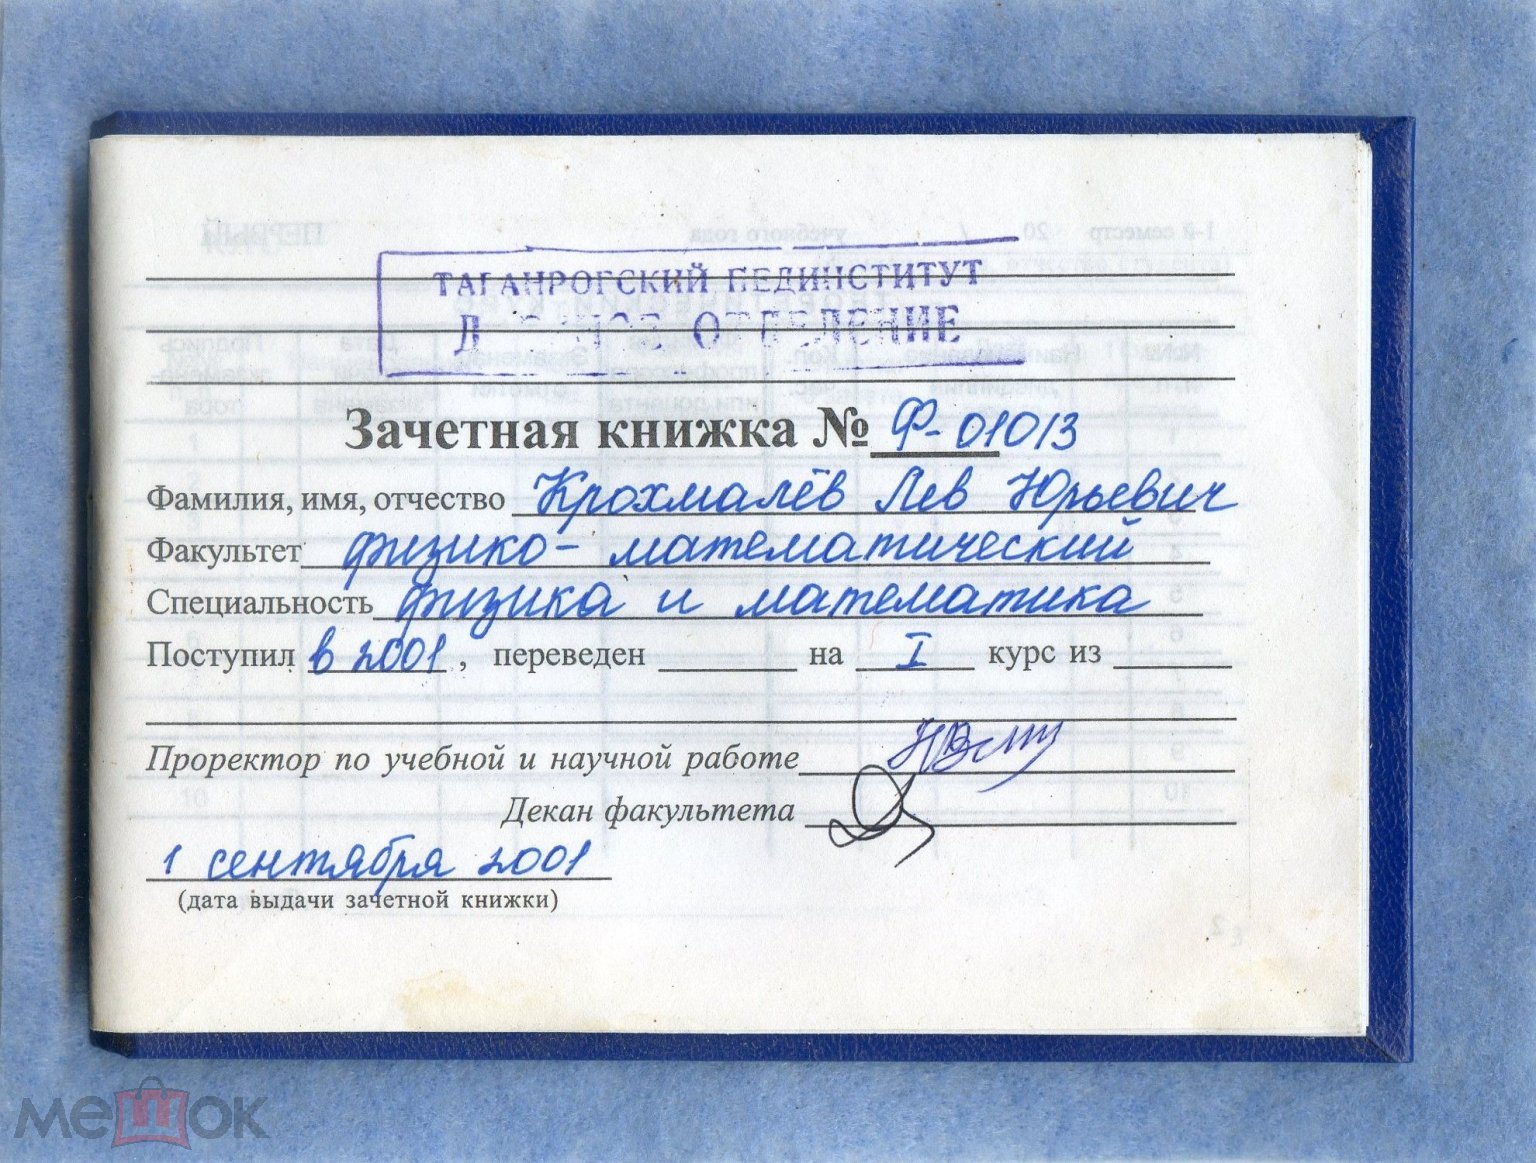 ТАГАНРОГСКИЙ ПЕДИНСТИТУТ
ОТДЕЛЕНИЕ
Зачетная книжка № Ф-01013
Фамилия, имя, отчество Крохмалёв Лев Юрьевич
Факультет физико-математический
Специальность физика и математика
Поступил в 2001, переведен на I курс из
Проректор по учебной и научной работе
Декан факультета
1 сентября 2001
(дата выдачи зачетной книжки)
мешок